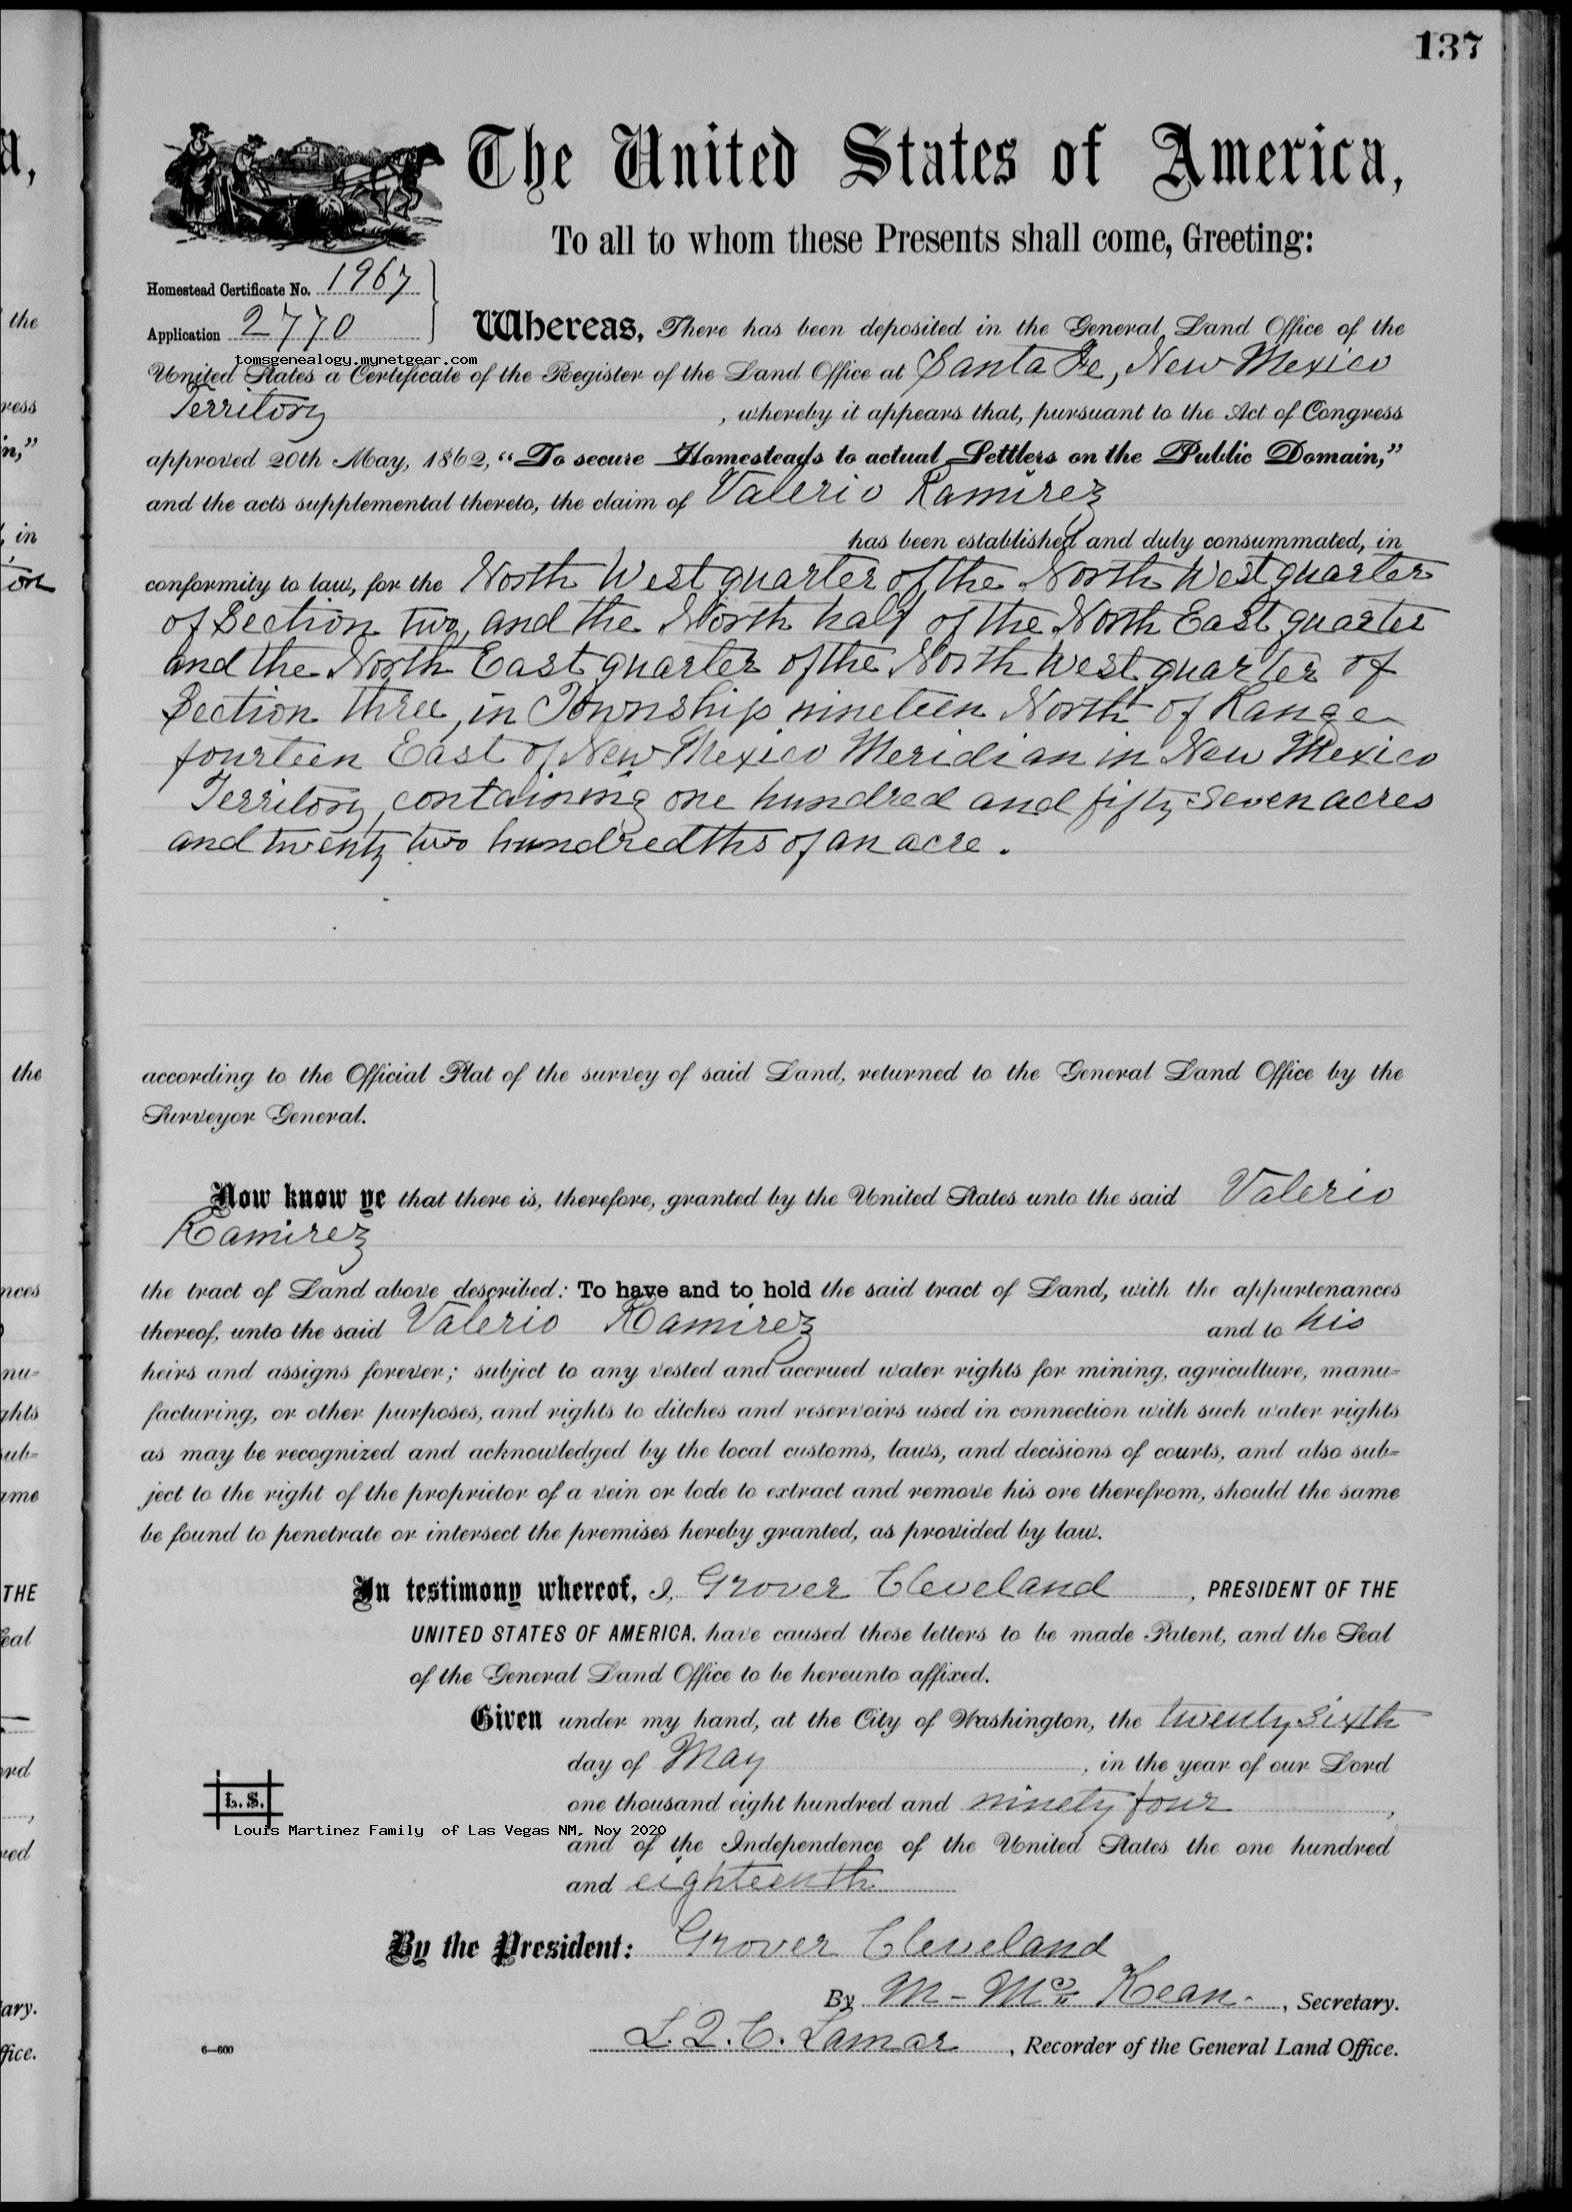 137
The United States of America,
To all to whom these Presents shall come, Greeting:
Homestead Certificate No. 1967
Application 2770
Whereas, There has been deposited in the General Land Office of the
tomsgenealogy.mynetgear.com
United States a Certificate of the Register of the Land Office at Santa Fe, New Mexico
Territory , whereby it appears that, pursuant to the Act of Congress
approved 20th May, 1862, "To secure Homesteads to actual Settlers on the Public Domain,"
and the acts supplemental thereto, the claim of Valerio Ramirez
has been established and duly consummated, in
conformity to law, for the North West quarter of the North West quarter
of Section two, and the North half of the North East quarter
and the North East quarter of the North West quarter of
Section three, in Township nineteen North of Range
fourteen East of New Mexico Meridian in New Mexico
Territory, containing one hundred and fifty seven acres
and twenty two hundredths of an acre.
according to the Official Plat of the survey of said Land, returned to the General Land Office by the
Surveyor General.
Now know ye that there is, therefore, granted by the United States unto the said Valerio
Ramirez
the tract of Land above described: To have and to hold the said tract of Land, with the appurtenances
thereof, unto the said Valerio Ramirez and to his
heirs and assigns forever; subject to any vested and accrued water rights for mining, agriculture, manu-
facturing, or other purposes, and rights to ditches and reservoirs used in connection with such water rights
as may be recognized and acknowledged by the local customs, laws, and decisions of courts, and also sub-
ject to the right of the proprietor of a vein or lode to extract and remove his ore therefrom, should the same
be found to penetrate or intersect the premises hereby granted, as provided by law.
In testimony whereof, I, Grover Cleveland , PRESIDENT OF THE
UNITED STATES OF AMERICA, have caused these letters to be made Patent, and the Seal
of the General Land Office to be hereunto affixed.
Given under my hand, at the City of Washington, the twenty sixth
day of May , in the year of our Lord
one thousand eight hundred and ninety four ,
L. S.
Louis Martinez Family of Las Vegas NM, Nov 2020
and of the Independence of the United States the one hundred
and eighteenth
By the President: Grover Cleveland
By M. McKean , Secretary.
L. Q. C. Lamar , Recorder of the General Land Office.
6—600